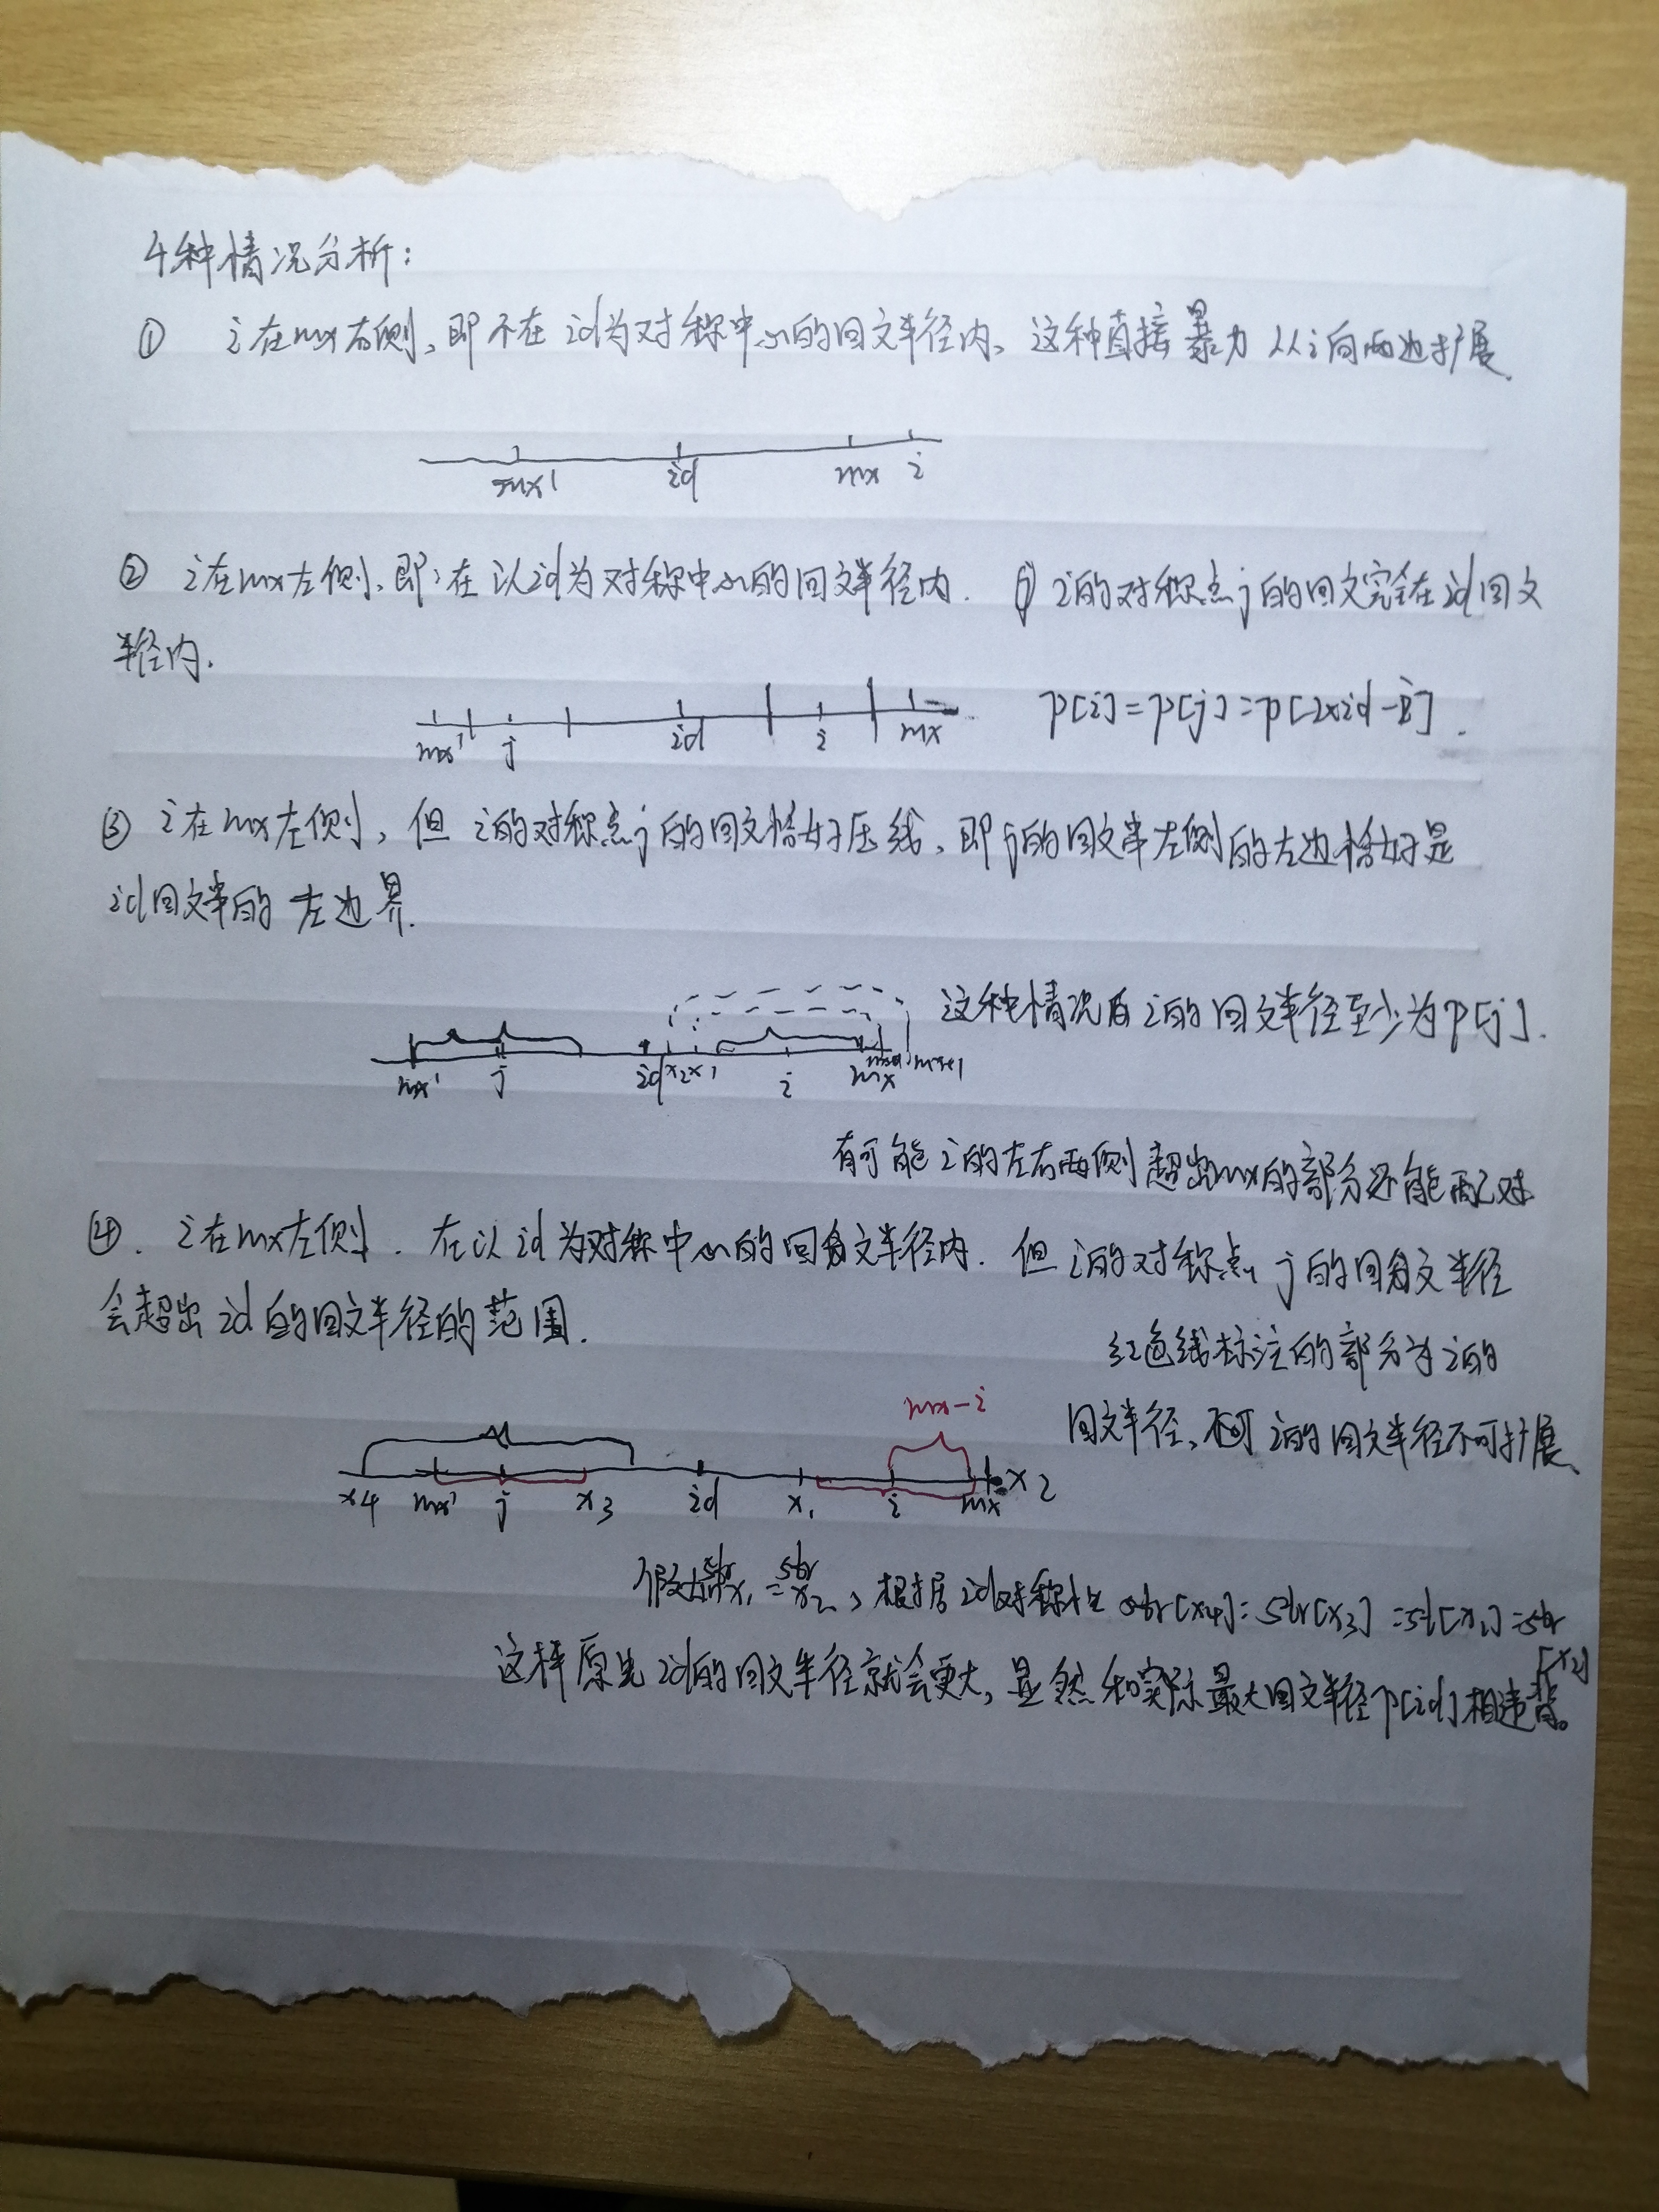 4种情况分析:
① i在mx右侧,即不在id为对称中心的回文半径内、这种直接暴力从i向两边扩展.
mx' id mx i
② i在mx左侧,即i在以id为对称中心的回文半径内. i的对称点j的回文完全在id回文
半径内.
p[i]=p[j]=p[2×id-i].
mx' j id i mx
③ i在mx左侧,但i的对称点j的回文恰好压线、即j的回文串左侧的左边恰好是
id回文串的左边界.
这种情况后i的回文半径至少为p[j].
mx' j id x2 x1 i mx mx+1
有可能i的左右两侧超出mx的部分还能配对
④. i在mx左侧.在以id为对称中心的回文半径内.但i的对称点j的回文半径
会超出id的回文半径的范围.
红色线标注的部分为i的
mx-i
回文半径、i的回文半径不可扩展、
x4 mx' j x3 id x1 i mx x2
假如str x1 = str x2,根据id对称性 str[x4]=str[x3]=st[x1]=str
[x2]
这样原先id的回文半径就会更大,显然和实际最大回文半径p[id]相违背。